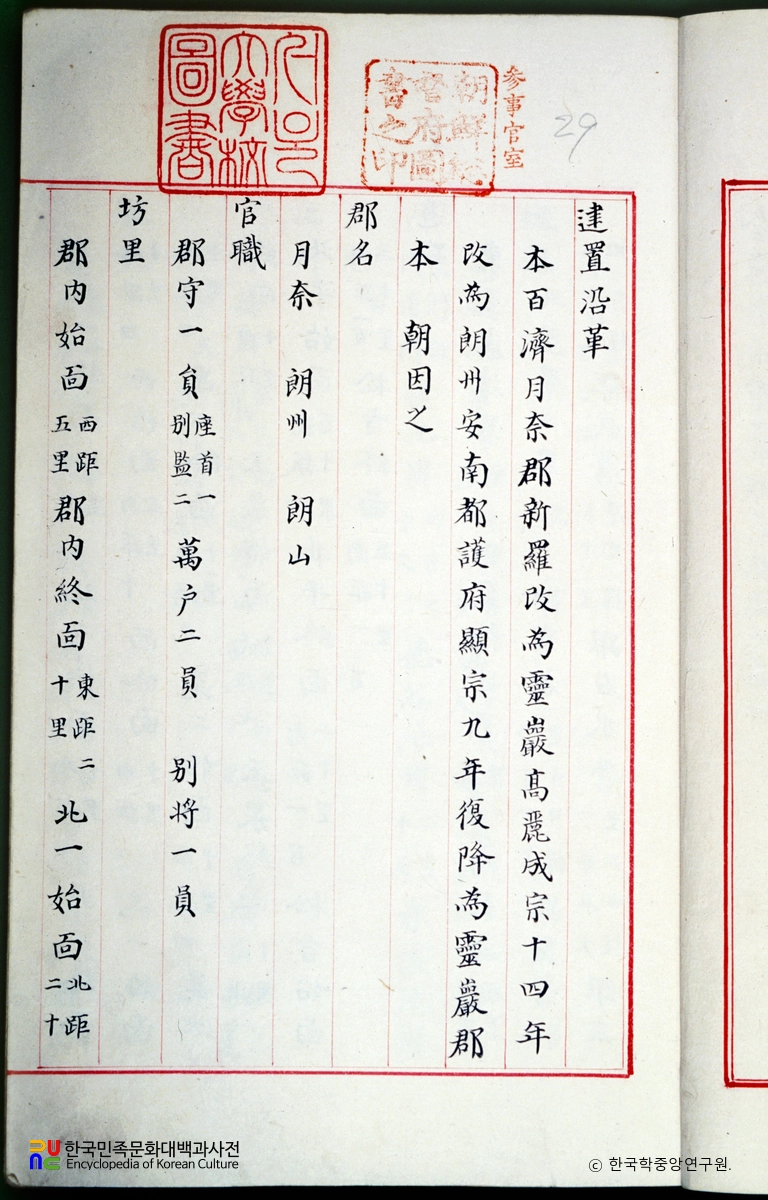 서울大學校圖書
朝鮮総督府圖書之印
参事官室
29
建置沿革
本百濟月奈郡新羅改為靈巖髙麗成宗十四年
改為朗州安南都護府顯宗九年復降為靈巖郡
本 朝因之
郡名
月奈 朗州 朗山
官職
郡守一員 座首一 别監二 萬户二員 别将一員
坊里
郡内始面 西距五里 郡内終面 東距十里 二 北一始面 北距二十
한국민족문화대백과사전
Encyclopedia of Korean Culture
© 한국학중앙연구원.